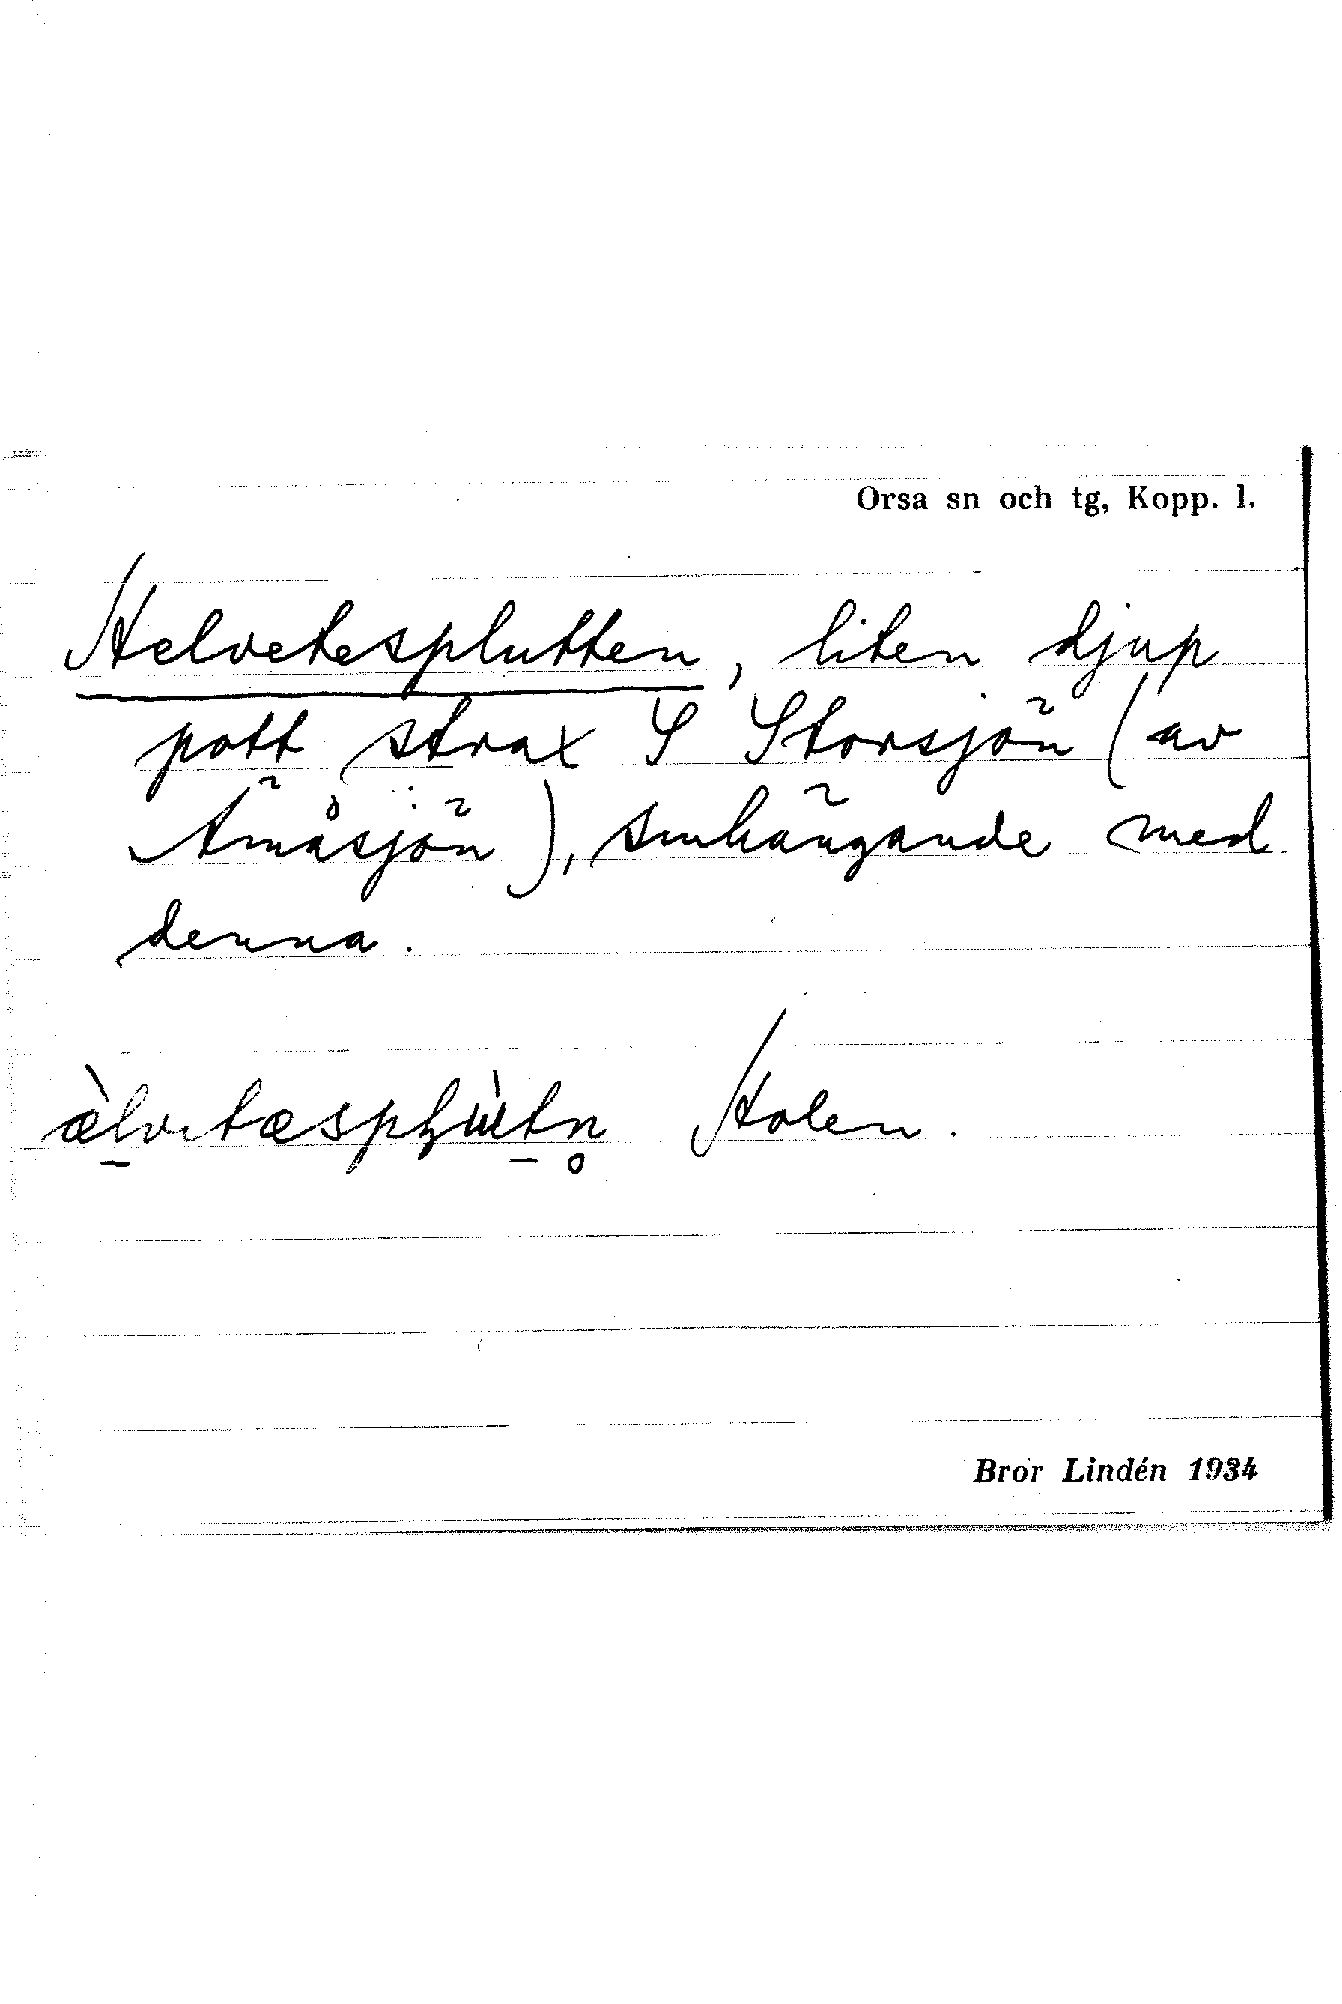 Orsa sn och tg, Kopp. l.
Helvetesplutten, liten djup
pott strax S Storsjön (av
Ämåsjön), smhängande med
denna.
Holen.
Bror Lindén 1934